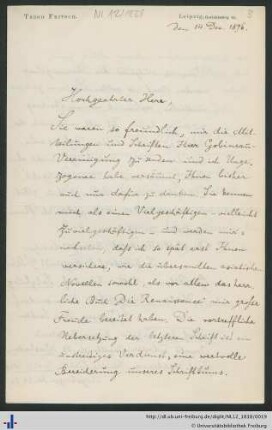 THEOD. FRITSCH.
Nl. 12/1838
LEIPZIG,
den 14 Dec. 1896.
Hochgeehrter Herr,
Sie waren so freundlich, mir die Mit-
teilungen und Schriften Ihrer Gobineau-
Vereinigung zu senden und ich Unge-
zogener habe versäumt, Ihnen bisher
auch nur dafür zu danken. Sie kennen
mich als einen Vielgeschäftigen – vielleicht
Zuvielgeschäftigen – und werden mir's
nachsehen, daß ich so spät erst Ihnen
versichere, wie die übersandten asiatischen
Novellen sowohl, als vor allem das herr-
liche Buch Die Renaissance mir große
Freude bereitet haben. Die vortreffliche
Uebersetzung der letzteren Schrift ist ein
Verdienst, eine wertvolle
Bereicherung unseres Schrifttums.
http://dl.ub.uni-freiburg.de/diglit/NL12_1838/0003
© Universitätsbibliothek Freiburg